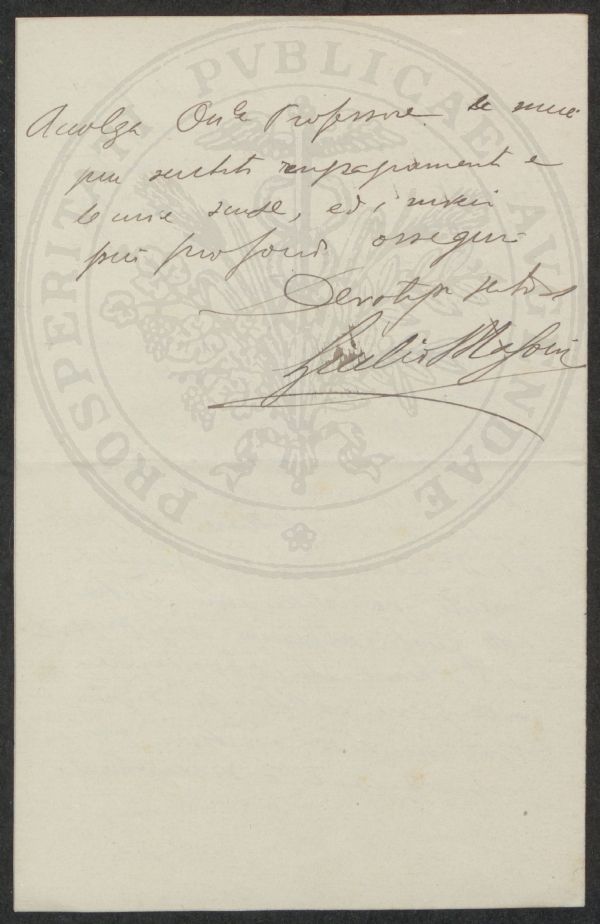 PROSPERITATI PVBLICAE AVGENDAE
Accolga On.le Professore le mie
più sentiti ringraziamenti e
le mie scuse, ed i miei
più profondi ossequi
Devotissimo
Giulio